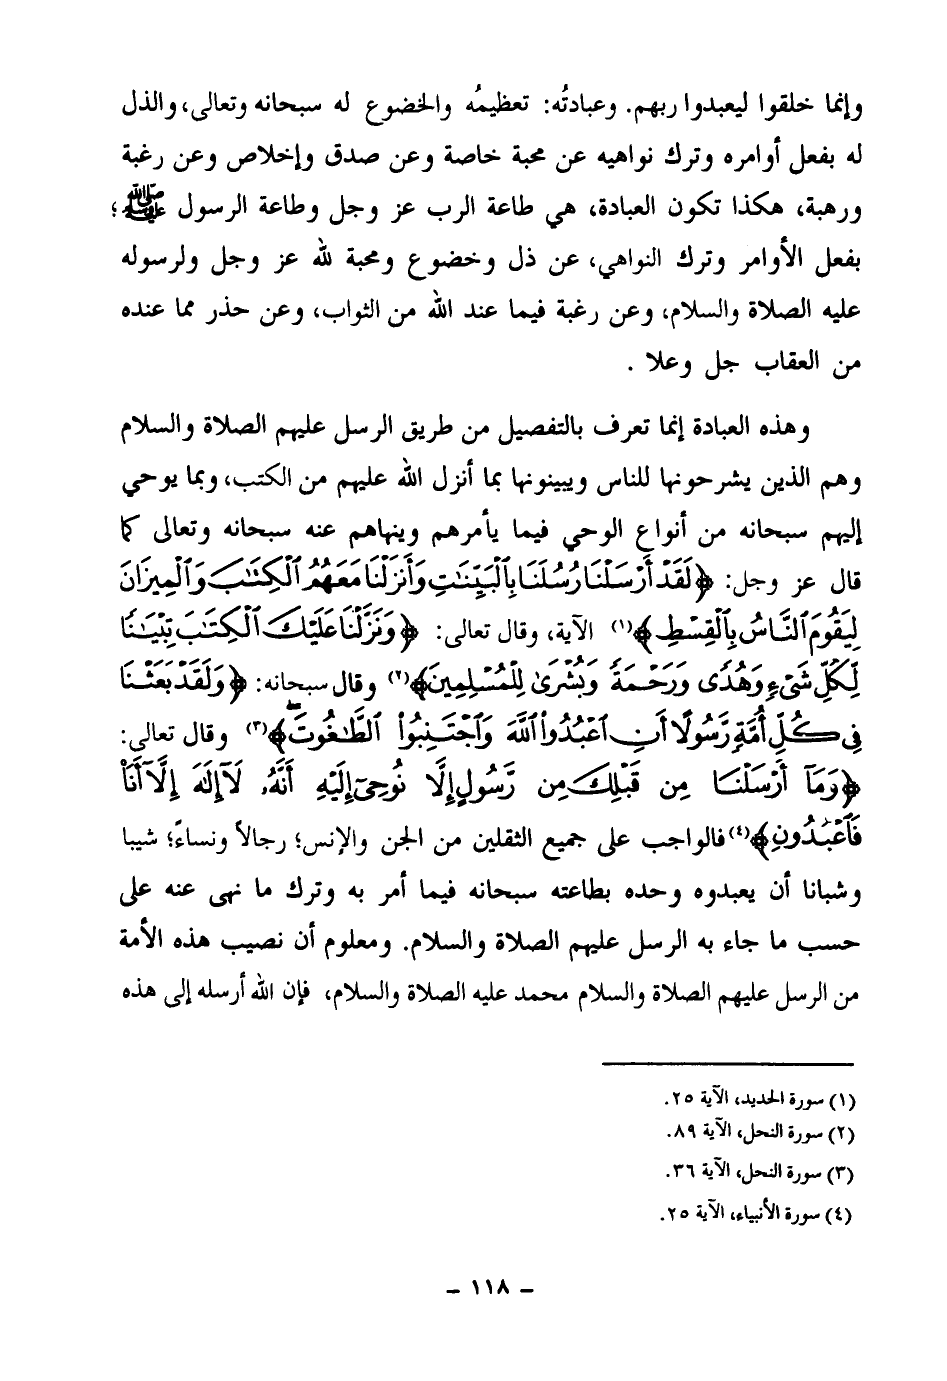 وإنما خلقوا ليعبدوا ربهم. وعبادتُه: تعظيمُه والخضوع له سبحانه وتعالى، والذل
له بفعل أوامره وترك نواهيه عن محبة خاصة وعن صدق وإخلاص وعن رغبة
ورهبة، هكذا تكون العبادة، هي طاعة الرب عز وجل وطاعة الرسول ﷺ؛
بفعل الأوامر وترك النواهي، عن ذل وخضوع ومحبة لله عز وجل ولرسوله
عليه الصلاة والسلام، وعن رغبة فيما عند الله من الثواب، وعن حذر مما عنده
من العقاب جل وعلا .
وهذه العبادة إنما تعرف بالتفصيل من طريق الرسل عليهم الصلاة والسلام
وهم الذين يشرحونها للناس ويبينونها بما أنزل الله عليهم من الكتب، وبما يوحي
إليهم سبحانه من أنواع الوحي فيما يأمرهم وينهاهم عنه سبحانه وتعالى كما
قال عز وجل: ﴿لَقَدْ أَرْسَلْنَا رُسُلَنَا بِٱلْبَيِّنَٰتِ وَأَنزَلْنَا مَعَهُمُ ٱلْكِتَٰبَ وَٱلْمِيزَانَ
لِيَقُومَ ٱلنَّاسُ بِٱلْقِسْطِ﴾(١) الآية، وقال تعالى: ﴿وَنَزَّلْنَا عَلَيْكَ ٱلْكِتَٰبَ تِبْيَٰنًا
لِّكُلِّ شَىْءٍ وَهُدًى وَرَحْمَةً وَبُشْرَىٰ لِلْمُسْلِمِينَ﴾(٢) وقال سبحانه: ﴿وَلَقَدْ بَعَثْنَا
فِى كُلِّ أُمَّةٍ رَّسُولًا أَنِ ٱعْبُدُوا۟ ٱللَّهَ وَٱجْتَنِبُوا۟ ٱلطَّٰغُوتَ﴾(٣) وقال تعالى:
﴿وَمَآ أَرْسَلْنَا مِن قَبْلِكَ مِن رَّسُولٍ إِلَّا نُوحِىٓ إِلَيْهِ أَنَّهُۥ لَآ إِلَٰهَ إِلَّآ أَنَا۠
فَٱعْبُدُونِ﴾(٤) فالواجب على جميع الثقلين من الجن والإنس؛ رجالاً ونساءً؛ شيبا
وشبانا أن يعبدوه وحده بطاعته سبحانه فيما أمر به وترك ما نهى عنه على
حسب ما جاء به الرسل عليهم الصلاة والسلام. ومعلوم أن نصيب هذه الأمة
من الرسل عليهم الصلاة والسلام محمد عليه الصلاة والسلام، فإن الله أرسله إلى هذه
(١) سورة الحديد، الآية ٢٥.
(٢) سورة النحل، الآية ٨٩.
(٣) سورة النحل، الآية ٣٦.
(٤) سورة الأنبياء، الآية ٢٥.
- ١١٨ -